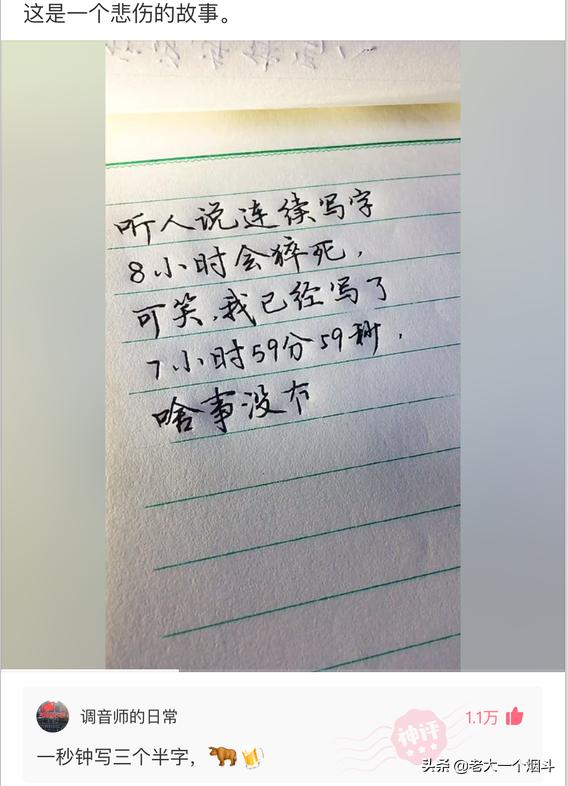 这是一个悲伤的故事。
听人说连续写字
8小时会猝死，
可笑，我已经写了
7小时59分59秒，
啥事没
调音师的日常
1.1万
一秒钟写三个半字，
神评
头条 @老大一个烟斗